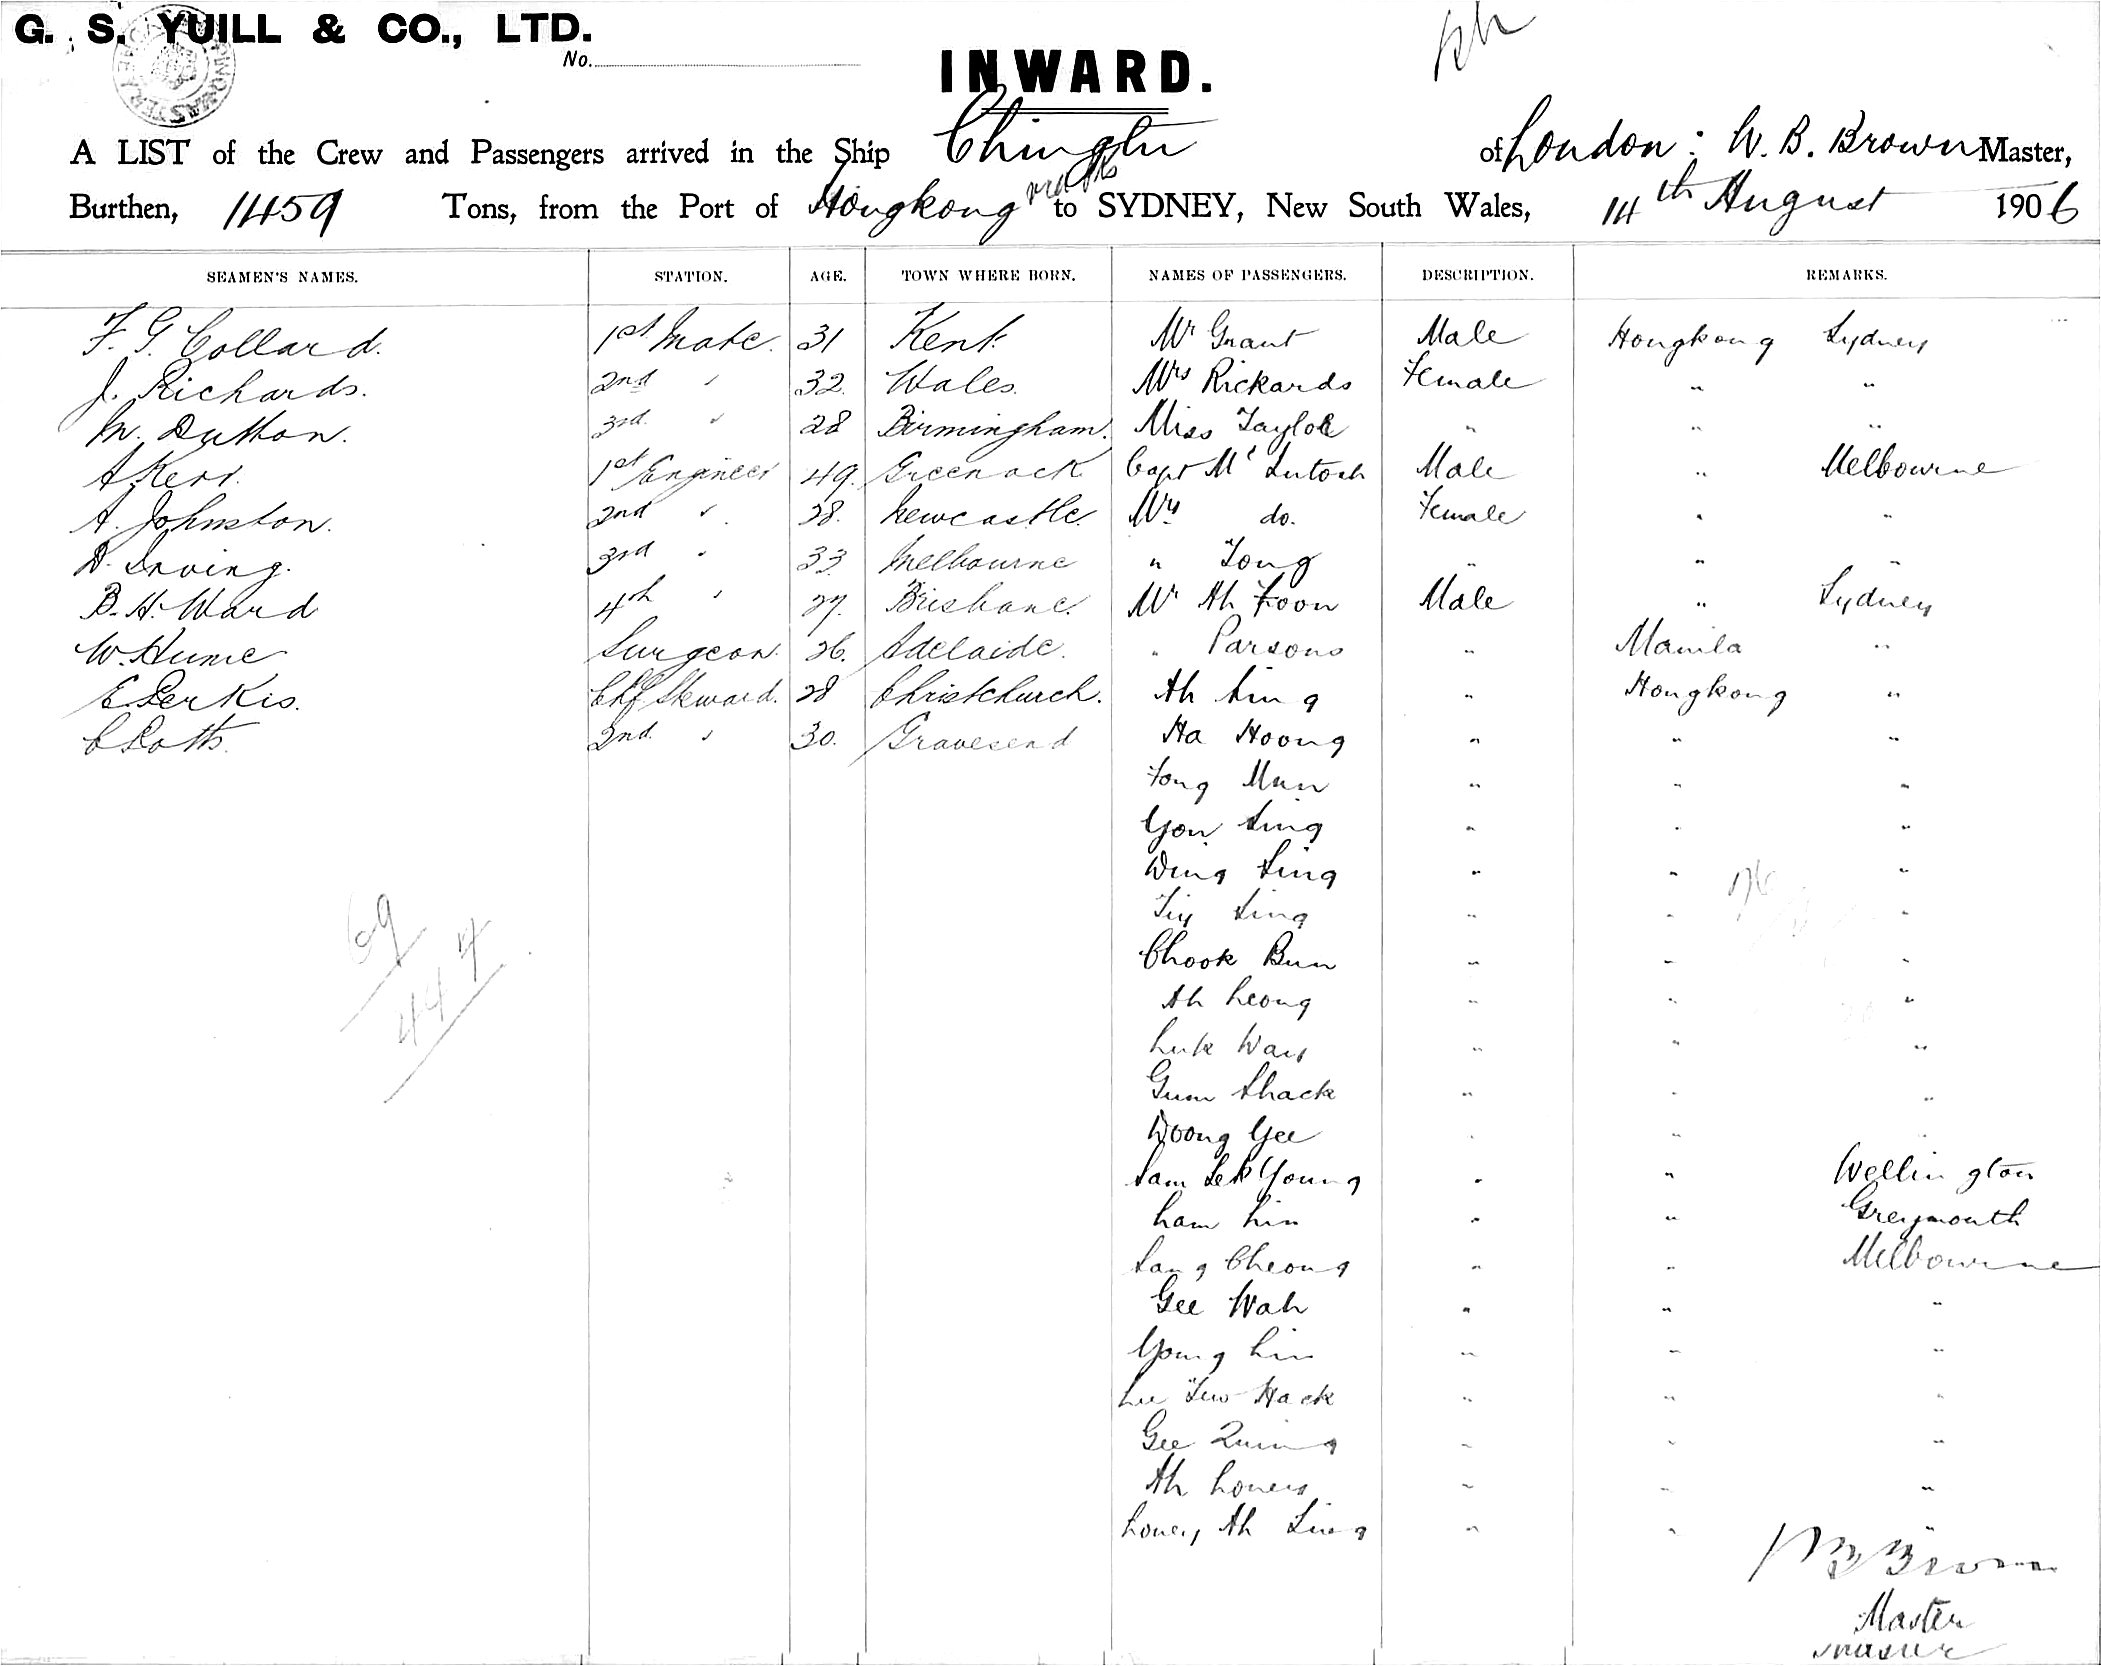 G. S. YUILL & CO., LTD.
No.
INWARD.
A LIST of the Crew and Passengers arrived in the Ship Chingtu of London: W. B. Brown Master,
Burthen, 1459 Tons, from the Port of Hongkong to SYDNEY, New South Wales, 14th August 1906
SEAMEN'S NAMES. STATION. AGE. TOWN WHERE BORN. NAMES OF PASSENGERS. DESCRIPTION. REMARKS.
F. G. Collard. 1st Mate. 31 Kent. Mr Grant Male Hongkong Sydney
J. Richards. 2nd " 32. Wales. Mrs Rickards Female " "
M. Dutton. 3rd. " 28 Birmingham. Miss Taylor " " "
A Kerr. 1st Engineer 49. Greenock Capt Mc Intosh Male " Melbourne
A. Johnston. 2nd " 28. Newcastle. Mrs do. Female " "
D. Irving. 3rd " 33. Melbourne " Tong " " "
B. H. Ward 4th " 27. Brisbane. Mr Ah Foon Male " Sydney
W. Hume Surgeon. 26. Adelaide. " Parsons " Manila "
E Perkis. Chf Steward. 28 Christchurch. Ah Sing " Hongkong "
C Potts. 2nd. " 30. Gravesend Ha Hoong " " "
Fong Mun " " "
You Sing " " "
Wing Sing " " "
Tiy Sing " " "
Chook Bun " " "
Ah Leong " " "
Luk Way " " "
Gum Shack " " "
Woong Gee " "
Sam Sek Young " " Wellington
Lam Lin " " Greymouth
Sang Cheong " " Melbourne
Gee Wah " " "
Young Lin " " "
Lee Tew Hack " " "
Gee Quing " " "
Ah Lowey " " "
Lowey Ah Sing " " "
69
4
44
W B Brown
Master
Master